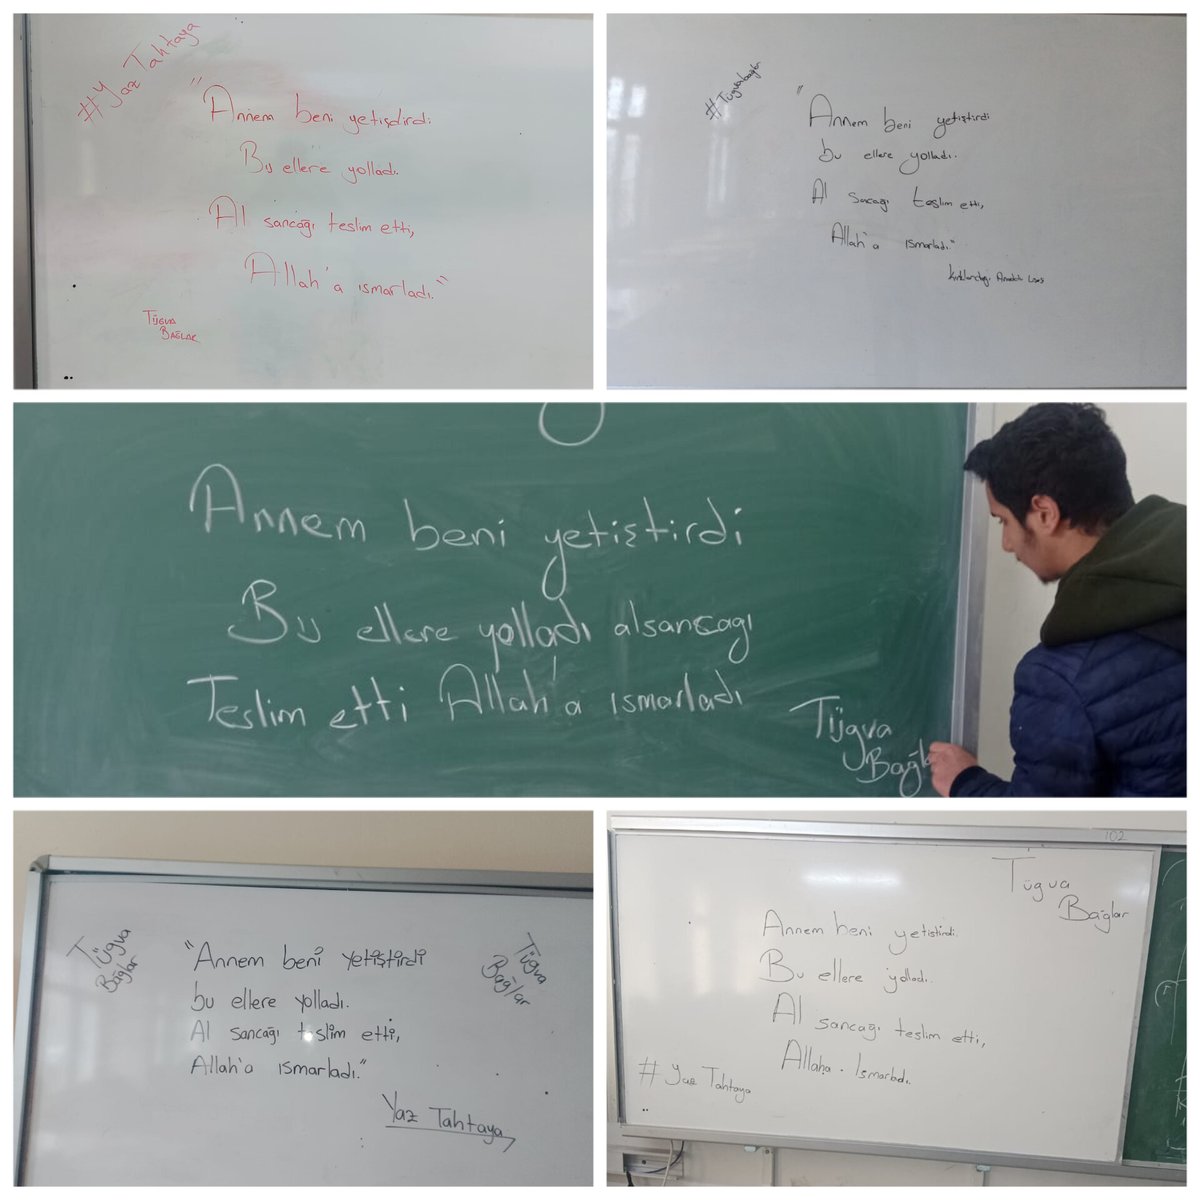 #Yaz Tahtaya
"Annem beni yetişdirdi
Bu ellere yolladı.
Al sancağı teslim etti,
Allah'a ısmarladı."
TÜGVA
BAĞLAR
#Tügvabağlar
"Annem beni yetiştirdi
bu ellere yolladı.
Al sancağı teslim etti,
Allah'a ısmarladı."
Anadolu Lisesi
Annem beni yetiştirdi
Bu ellere yolladı alsancagı
Teslim etti Allah'a ısmarladı
Tügva
Bağla
Tügva
Bağlar
Tügva
Bağlar
"Annem beni yetiştirdi
bu ellere yolladı.
Al sancağı teslim etti,
Allah'a ısmarladı."
Yaz Tahtaya
102
Tügva
Bağlar
Annem beni yetistirdi.
Bu ellere yolladı.
Al sancağı teslim etti,
Allaha. Ismarladı.
# Yaz Tahtaya